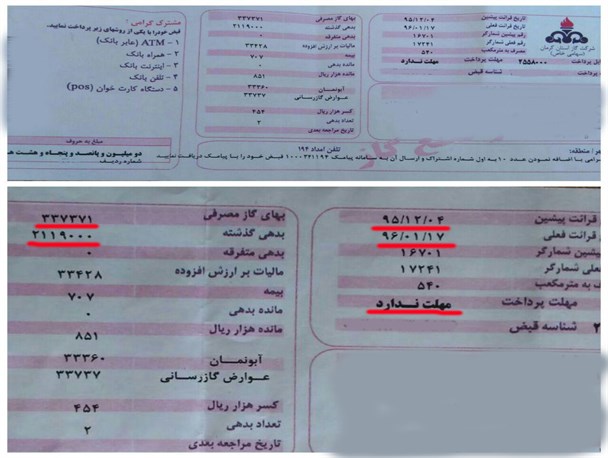 شرکت گاز استان کرمان
(سهامی خاص)
تاریخ قرائت پیشین ۹۵/۱۲/۰۴
تاریخ قرائت فعلی ۹۶/۰۱/۱۷
رقم پیشین شمارگر ۱۶۷۰۱
رقم فعلی شمارگر ۱۷۲۴۱
مصرف به مترمکعب ۵۴۰
پرداخت ۲۵۵۸۰۰۰ مهلت پرداخت مهلت ندارد
شناسه قبض
بهای گاز مصرفی ۳۳۷۳۷۱
بدهی گذشته ۲۱۱۹۰۰۰
بدهی متفرقه ۰
مالیات بر ارزش افزوده ۳۳۴۲۸
بیمه ۷۰۷
مانده بدهی ۰
مانده هزار ریال ۸۵۱
آبونمان ۳۳۳۶۰
عوارض گازرسانی ۳۳۷۳۷
کسر هزار ریال ۴۵۴
تعداد بدهی ۲
تاریخ مراجعه بعدی
مشترک گرامی :
قبض خود را با یکی از روشهای زیر پرداخت نمایید.
۱ - ATM (عابر بانک)
۲ - همراه بانک
۳ - اینترنت بانک
۴ - تلفن بانک
۵ - دستگاه کارت خوان (pos)
مبلغ به حروف
دو میلیون و پانصد و پنجاه و هشت
شماره ردیف
منطقه:
تلفن امداد ۱۹۴
با اضافه نمودن عدد ۱۰ به اول شماره اشتراک و ارسال آن به سامانه پیامک ۱۰۰۰۳۶۱۱۹۴ قبض خود را با پیامک دریافت نمایید
قرائت پیشین ۹۵/۱۲/۰۴
قرائت فعلی ۹۶/۰۱/۱۷
پیشین شمارگر ۱۶۷۰۱
فعلی شمارگر ۱۷۲۴۱
به مترمکعب ۵۴۰
مهلت پرداخت مهلت ندارد
شناسه قبض
بهای گاز مصرفی ۳۳۷۳۷۱
بدهی گذشته ۲۱۱۹۰۰۰
بدهی متفرقه ۰
مالیات بر ارزش افزوده ۳۳۴۲۸
بیمه ۷۰۷
مانده بدهی ۰
مانده هزار ریال ۸۵۱
آبونمان ۳۳۳۶۰
عوارض گازرسانی ۳۳۷۳۷
کسر هزار ریال ۴۵۴
تعداد بدهی ۲
تاریخ مراجعه بعدی